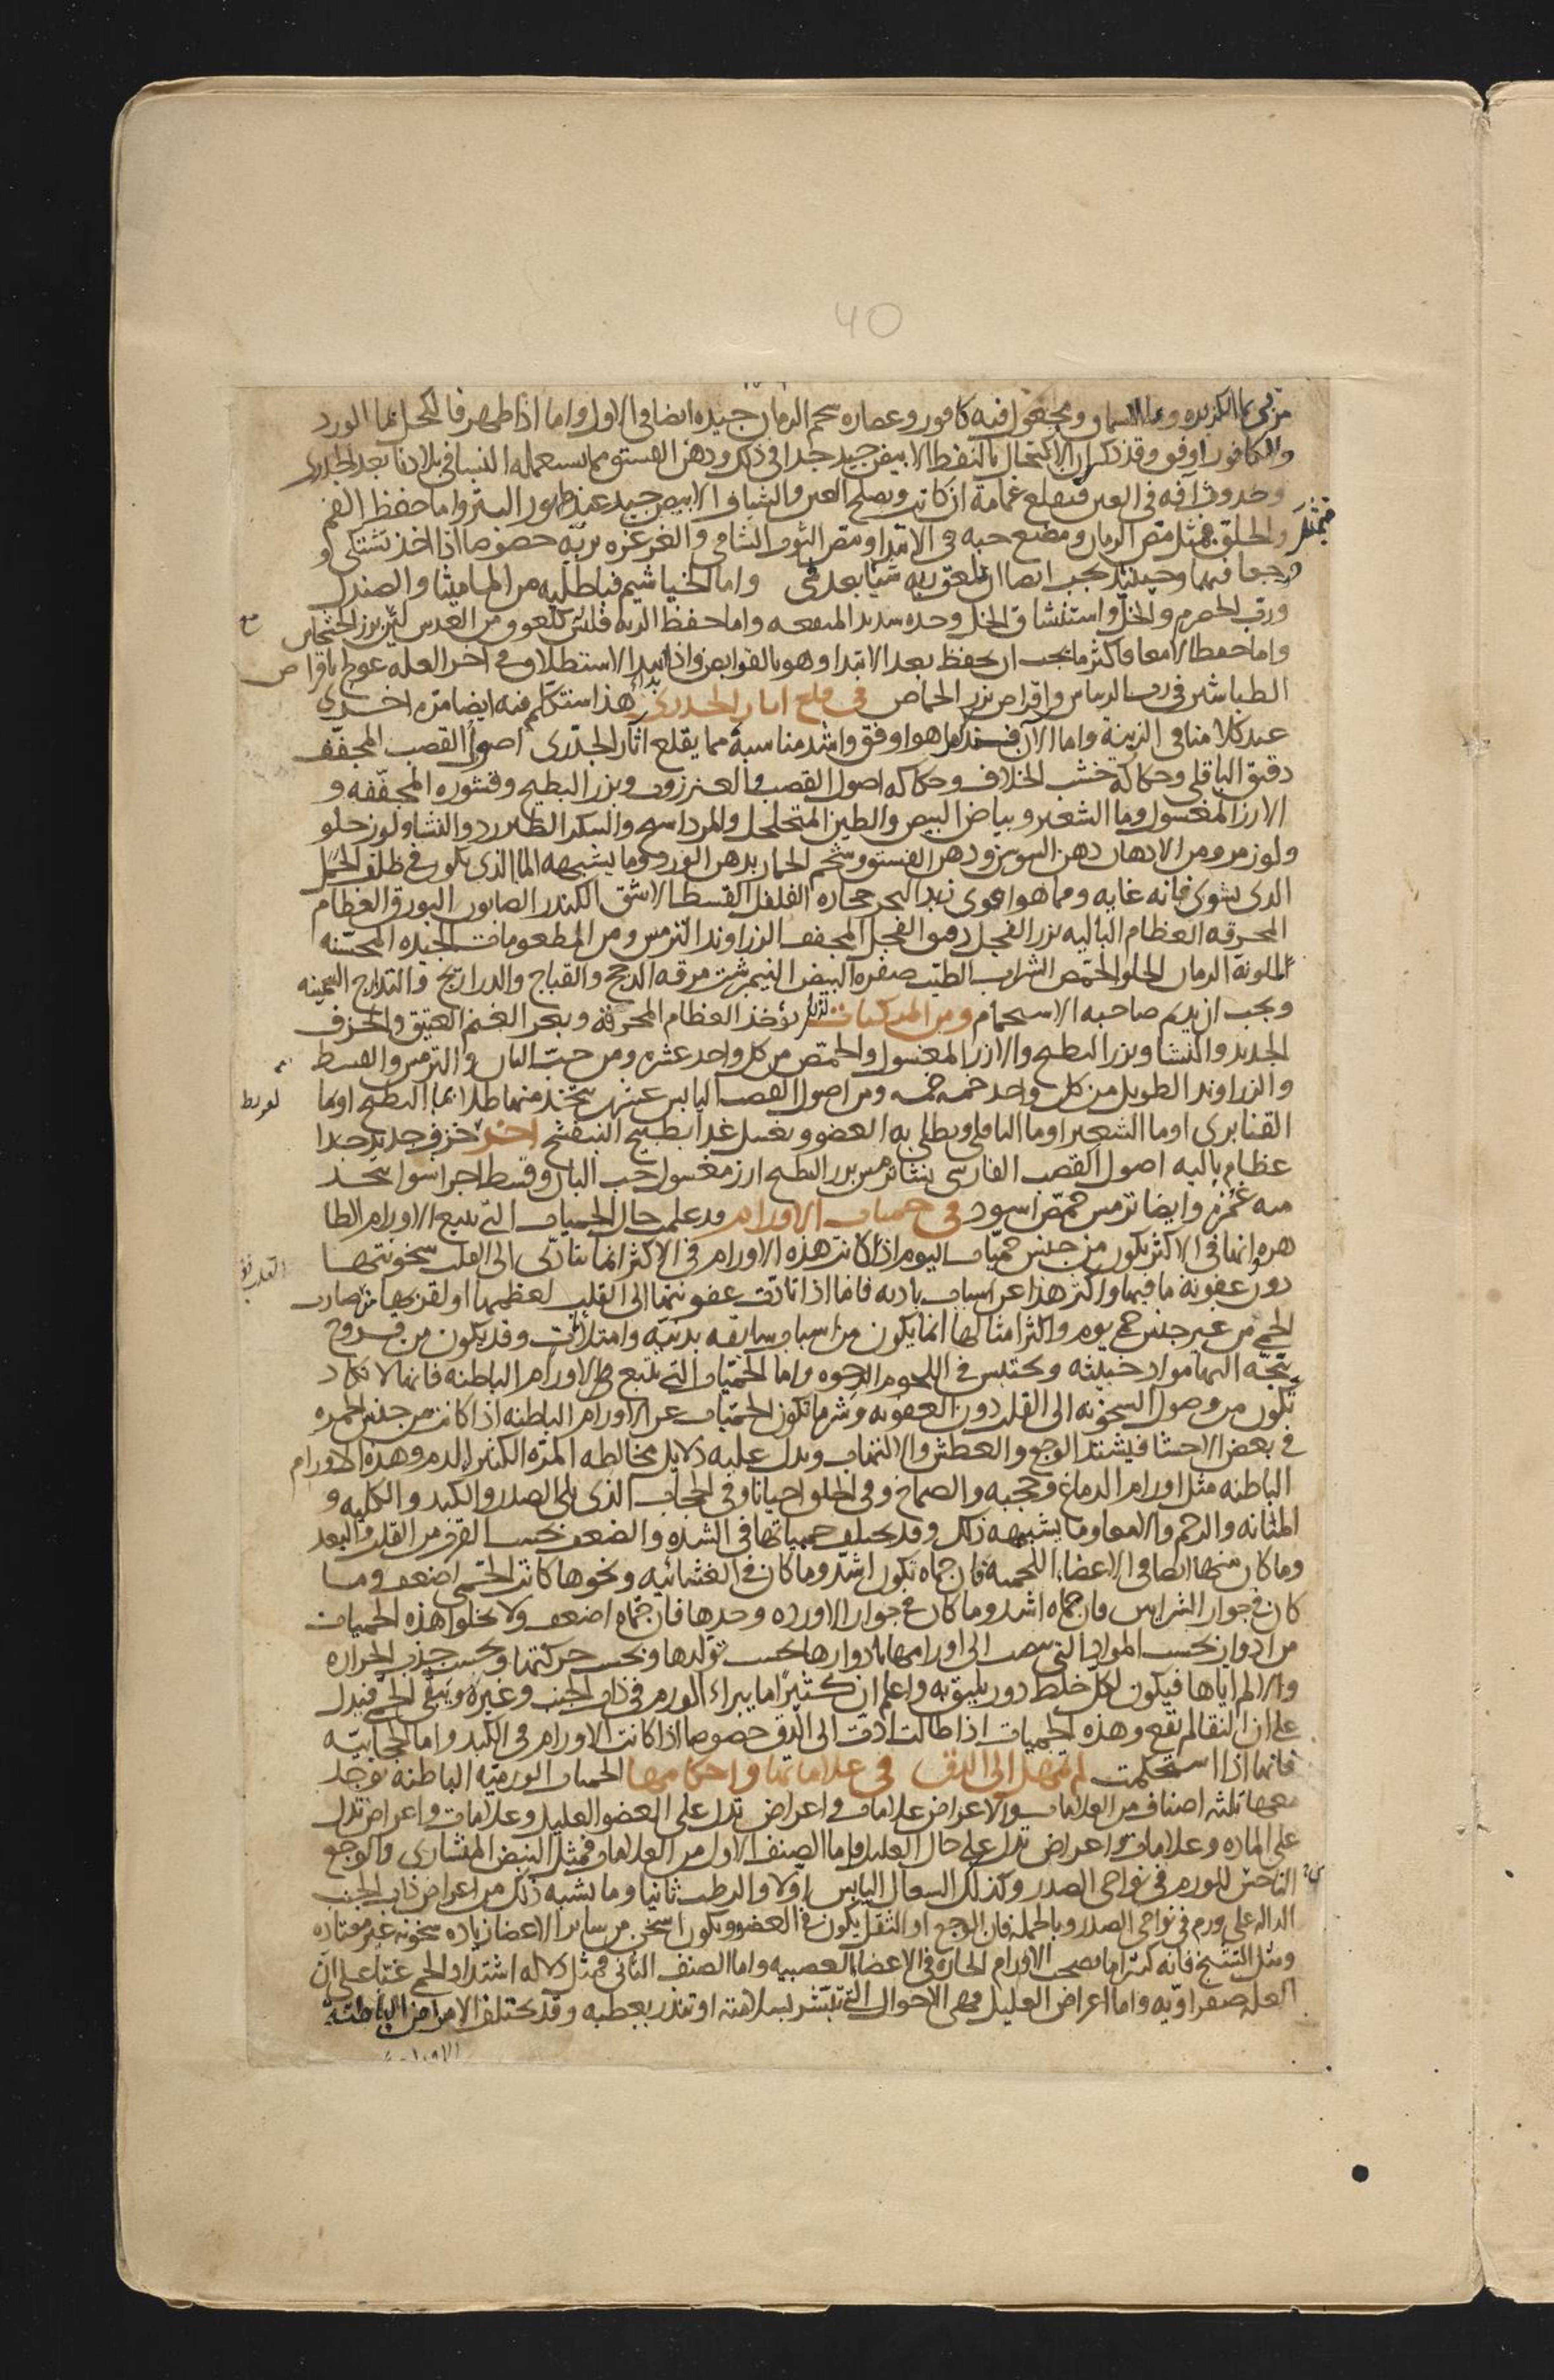 40
مربى بماء الكزبره وماء السماق ومجعول فيه كافور وعصاره شحم الرمان جيده ايضا فى الاول واما اذا ظهر فالكحل بماء الورد
والكافور اوفق وقد ذكر ان الاكتحال بالنفط الابيض جيد جدا فى ذلك ودهن الفستق مما يستعمله النسا فى بلادنا بعد الجدرى
وحدوث افه فى العين فيقلع غمامة ان كانت ويصلح العين والشياف الابيض جيد عند ظهور البثر واما حفظ الفم
والحلق فمثل مص الرمان ومضغ حبه فى الابتدا ومص التوت الشامى والغرغره بربه خصوصا اذا اخذ يشتكى و
وجعا فيهما وحينئذ يجب ايضا ان يلعق ربه شيا بعد شى واما الخياشيم فباطليه من الماميثا والصندل
ورب الحصرم والخل واستنشاق الخل وحده شديد المنفعه واما حفظ الريه فليس كلعوق من العدس لين ببزر الخشخاش
واما حفظ الامعا فاكثر ما يجب ان يحفظ بعد الابتدا وهو بالقوابض واذا ابتدا الاستطلاق فى اخر العله عولج باقراص
الطباشير فى رب الريباس واقراص بزر الحماض فى قلع اثار الجدرى هذا سنتكلم فيه ايضا مرة اخرى
عند كلامنا فى الزينة واما الآن فسنذكر ما هو اوفق واشد مناسبة مما يقلع آثار الجدرى اصول القصب المجفف
دقيق الباقلى وحكاكه خشب الخلاف وحكاكه اصول القصب والعنزروت وبزر البطيخ وقشوره المجففه و
الارز المغسول وما الشعير وبياض البيض والطين المتخلخل والمرداسنج والسكر الطبرزد والنشا ولوز حلو
ولوز مر ومن الادهان دهن السوسن ودهن الفستق وشحم الحمار بدهن الورد وما يشبهه الما الذى يكون فى ظلف الحمل
الذى يشوى فانه غايه ومما هو اقوى زبد البحر حجاره الفلفل القسط الاشق الكندر الصابون البورق العظام
المحرقه العظام الباليه بزر الفجل دقيق الفجل المجفف الزراوند الترمس ومن المطعومات الجيده المحسنه
للونه الرمان الحلو الحمص الشراب الطيب صفره البيض النيمرشت مرقه الدجج والقباج والدراريج والتدارج السمينه
ويجب ان يديم صاحبه الاستحمام ومن المركبات لذلك يؤخذ العظام المحرقة وبعر الغنم العتيق والخزف
الجديد والنشا وبزر البطيخ والارز المغسول والحمص من كل واحد عشره ومن حب البان والترمس والقسط
والزراوند الطويل من كل واحد خمسه خمسه ومن اصول القصب اليابس عشرين يتخذ منها طلا بما البطيخ او بما
القنابرى او ما الشعير او ما الباقلى ويطلى به العضو ويغسل غدا بطبيخ البنفسج اخر خزف جديد جدا
عظام باليه اصول القصب الفارسى نشا ترمس بزر البطيخ ارز مغسول حب البان وقسط اجزا سوا يتخذ
منه غمره وايضا ترمس حمص اسود فى حميات الاورام قد علمت حال الحميات التى تتبع الاورام الظا
هره وانها فى الاكثر تكون من جنس حميات اليوم اذا كانت هذه الاورام فى الاكثر انما يتادى الى القلب سخونتها
دون عفونة ما فيها واكثر هذا عن اسباب باديه فاما اذا تادت عفونتها الى القلب لعظمها او لقربها منه صارت
الحمى من غير جنس حمى يوم واكثر امثالها انما يكون من اسباب سابقه بدنيه وامتلات وقد يكون من قروح
يتجه اليها مواد خبيثه ويحتبس فى اللحوم الرخوه واما الحميات التى تتبع الاورام الباطنه فانها لا تكاد
تكون من وصول السخونه الى القلب دون العفونه وشر ما تكون الحميات عن الاورام الباطنه اذا كانت من جنس الحمره
فى بعض الاحشا فيشتد الوجع والعطش والالتهاب ويدل عليه دلايل مخالطه المره الكثير للدم وهذه الاورام
الباطنه مثل اورام الدماغ وحجبه والصماخ وفى الحلق احيانا وفى الحجاب الذى يلى الصدر والكبد والكليه و
المثانه والرحم والامعا وما يشبهه ذلك وقد يختلف حمياتها فى الشده والضعف بحسب القرب من القلب والبعد
وما كان منها ايضا فى الاعضاء اللحميه فان حماه تكون اشد وما كان فى الغشائيه ونحوها كانت الحمى اضعف وما
كان فى جوار الشرايين فان حماه اشد وما كان فى جوار الاورده وحدها فان حماه اضعف ولا يخلوا هذه الحميات
من ادوار بحسب المواد التى تنصب الى اورامها بادوارها بحسب تولدها وبحسب حركتها وبحسب جذب الحراره
والالم اياها فيكون لكل خلط دور يليق به واعلم ان كثيرا ما يبراء الورم فى ذات الجنب وغيره ويبقى الحمى فيدل
على ان النقا لم يقع وهذه الحميات اذا طالت ادت الى الدق خصوصا اذا كانت الاورام فى الكبد واما الحجابيه
فانها اذا استحكمت لم تمهل الى الدق فى علاماتها واحكامها الحميات الورميه الباطنه توجد
معها ثلثه اصناف من العلامات والاعراض علامات واعراض تدل على العضو العليل وعلامات واعراض تدل
على الماده وعلامات واعراض تدل على حال العليل فاما الصنف الاول من العلامات فمثل النبض المنشارى والوجع
الناخس للورم فى نواحى الصدر وكذلك السعال اليابس اولا والرطب ثانيا وما يشبه ذلك من اعراض ذات الجنب
الداله على ورم فى نواحى الصدر وبالجمله فان الوجع او الثقل يكون فى العضو ويكون اسخن من ساير الاعضا زياده سخونه غير معتاده
ومثل التشنج فانه كثيرا ما يصحب الاورام الحاره فى الاعضا العصبيه واما الصنف الثانى فمثل دلاله اشتداد الحمى غبا على ان
العله صفراويه واما اعراض العليل فهى الاحوال التى تبشر بسلامته او تنذر بعطبه وقد يختلف الامراض الباطنه